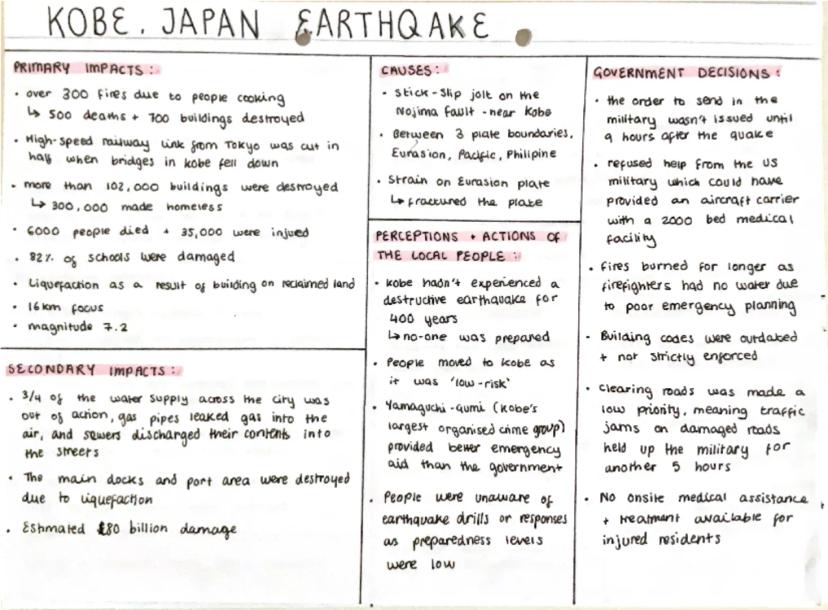 KOBE, JAPAN EARTHQAKE
PRIMARY IMPACTS:
• over 300 fires due to people cooking
↳ 500 deaths + 700 buildings destroyed
• High-speed railway link from Tokyo was cut in
half when bridges in Kobe fell down
• more than 102,000 buildings were destroyed
↳ 300,000 made homeless
• 6000 people died + 35,000 were injued
• 82% of schools were damaged
• Liquefaction as a result of building on reclaimed land
• 16km focus
• magnitude 7.2
SECONDARY IMPACTS:
• 3/4 of the water supply across the city was
out of action, gas pipes leaked gas into the
air, and sewers discharged their contents into
the streets
• The main docks and port area were destroyed
due to liquefaction
• Estimated £80 billion damage
CAUSES:
• Stick-slip jolt on the
Nojima fault - near Kobe
• Between 3 plate boundaries,
Eurasion, Pacific, Philipine
• Strain on Eurasion plate
↳ fractured the plate
PERCEPTIONS + ACTIONS OF
THE LOCAL PEOPLE:
• Kobe hadn't experienced a
destructive earthquake for
400 years
↳ no-one was prepared
• People moved to Kobe as
it was 'low-risk'
• Yamaguchi-Gumi (Kobe's
largest organised crime group)
provided better emergency
aid than the government
• People were unaware of
earthquake drills or responses
as preparedness levels
were low
GOVERNMENT DECISIONS:
• the order to send in the
military wasn't issued until
9 hours after the quake
• refused help from the US
military which could have
provided an aircraft carrier
with a 2000 bed medical
facility
• Fires burned for longer as
firefighters had no water due
to poor emergency planning
• Building codes were outdated
+ not strictly enforced
• Clearing roads was made a
low priority, meaning traffic
jams on damaged roads
held up the military for
another 5 hours
• No onsite medical assistance
+ treatment available for
injured residents